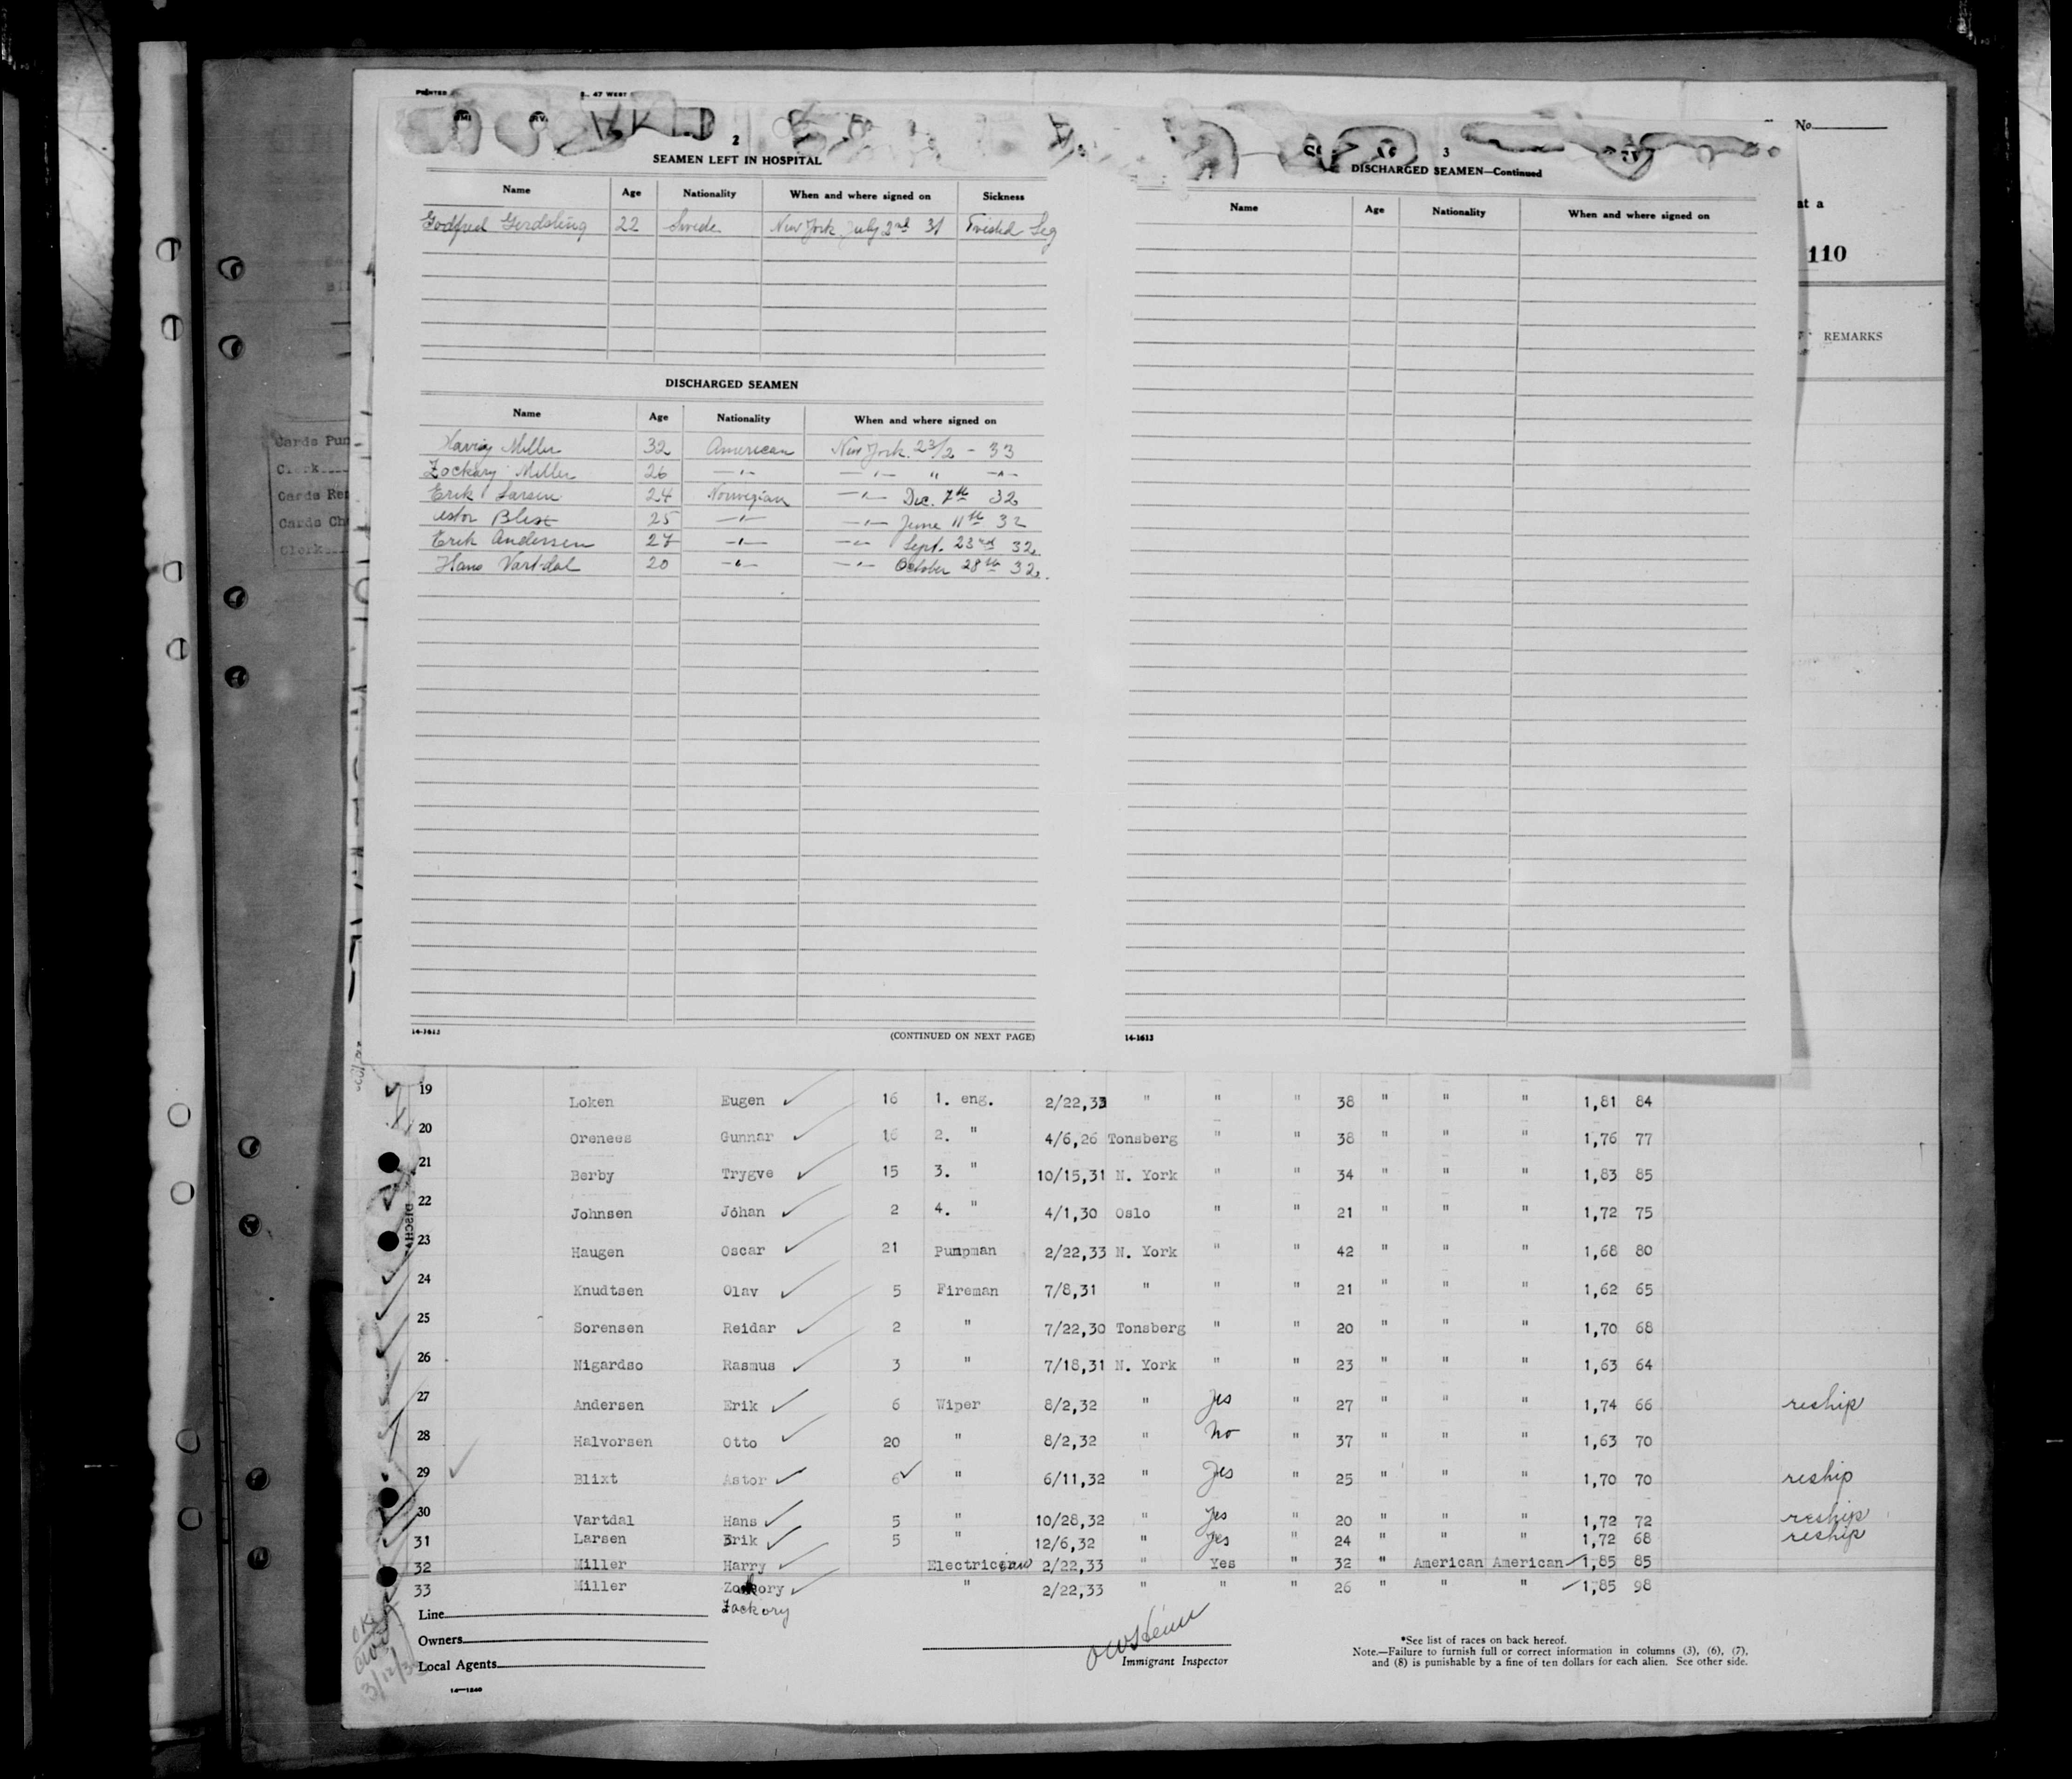 PRINTED
47 WEST
No.
2
SEAMEN LEFT IN HOSPITAL
Name Age Nationality When and where signed on Sickness
Godfred Gerdsling 22 Swede New York July 2nd 31 Twisted Leg
DISCHARGED SEAMEN
Name Age Nationality When and where signed on
Harry Miller 32 American New York 23/2 - 33
Zackary Miller 26 -"- -"- " -"-
Erik Larsen 24 Norwegian -"- Dec. 7th 32
Astor Blixt 25 -"- -"- June 11th 32
Erik Andersen 27 -"- -"- Sept. 23rd 32.
Hans Vartdal 20 -"- -"- October 28th 32.
14-1613
(CONTINUED ON NEXT PAGE)
3
DISCHARGED SEAMEN—Continued
Name Age Nationality When and where signed on
14-1613
at a
110
REMARKS
Cards Pun
Clerk
Cards Re
Cards Ch
Clerk
19 Loken Eugen 16 1. eng. 2/22,33 " " " 38 " " " 1,81 84
20 Orenees Gunnar 16 2. " 4/6,26 Tonsberg " " 38 " " " 1,76 77
21 Berby Trygve 15 3. " 10/15,31 N. York " " 34 " " " 1,83 85
22 Johnsen Johan 2 4. " 4/1,30 Oslo " " 21 " " " 1,72 75
23 Haugen Oscar 21 Pumpman 2/22,33 N. York " " 42 " " " 1,68 80
24 Knudtsen Olav 5 Fireman 7/8,31 " " " 21 " " " 1,62 65
25 Sorensen Reidar 2 " 7/22,30 Tonsberg " " 20 " " " 1,70 68
26 Nigardso Rasmus 3 " 7/18,31 N. York " " 23 " " " 1,63 64
27 Andersen Erik 6 Wiper 8/2,32 " Yes " 27 " " " 1,74 66 reship
28 Halvorsen Otto 20 " 8/2,32 " No " 37 " " " 1,63 70
29 Blixt Astor 6 " 6/11,32 " Yes " 25 " " " 1,70 70 reship
30 Vartdal Hans 5 " 10/28,32 " Yes " 20 " " " 1,72 72 reship
31 Larsen Erik 5 " 12/6,32 " Yes " 24 " " " 1,72 68 reship
32 Miller Harry Electrician 2/22,33 " Yes " 32 " American American 1,85 85
33 Miller Zackory " 2/22,33 " " " 26 " " " 1,85 98
Zackory
Line
Owners
Local Agents
14—1240
Immigrant Inspector
*See list of races on back hereof.
Note.—Failure to furnish full or correct information in columns (3), (6), (7),
and (8) is punishable by a fine of ten dollars for each alien. See other side.